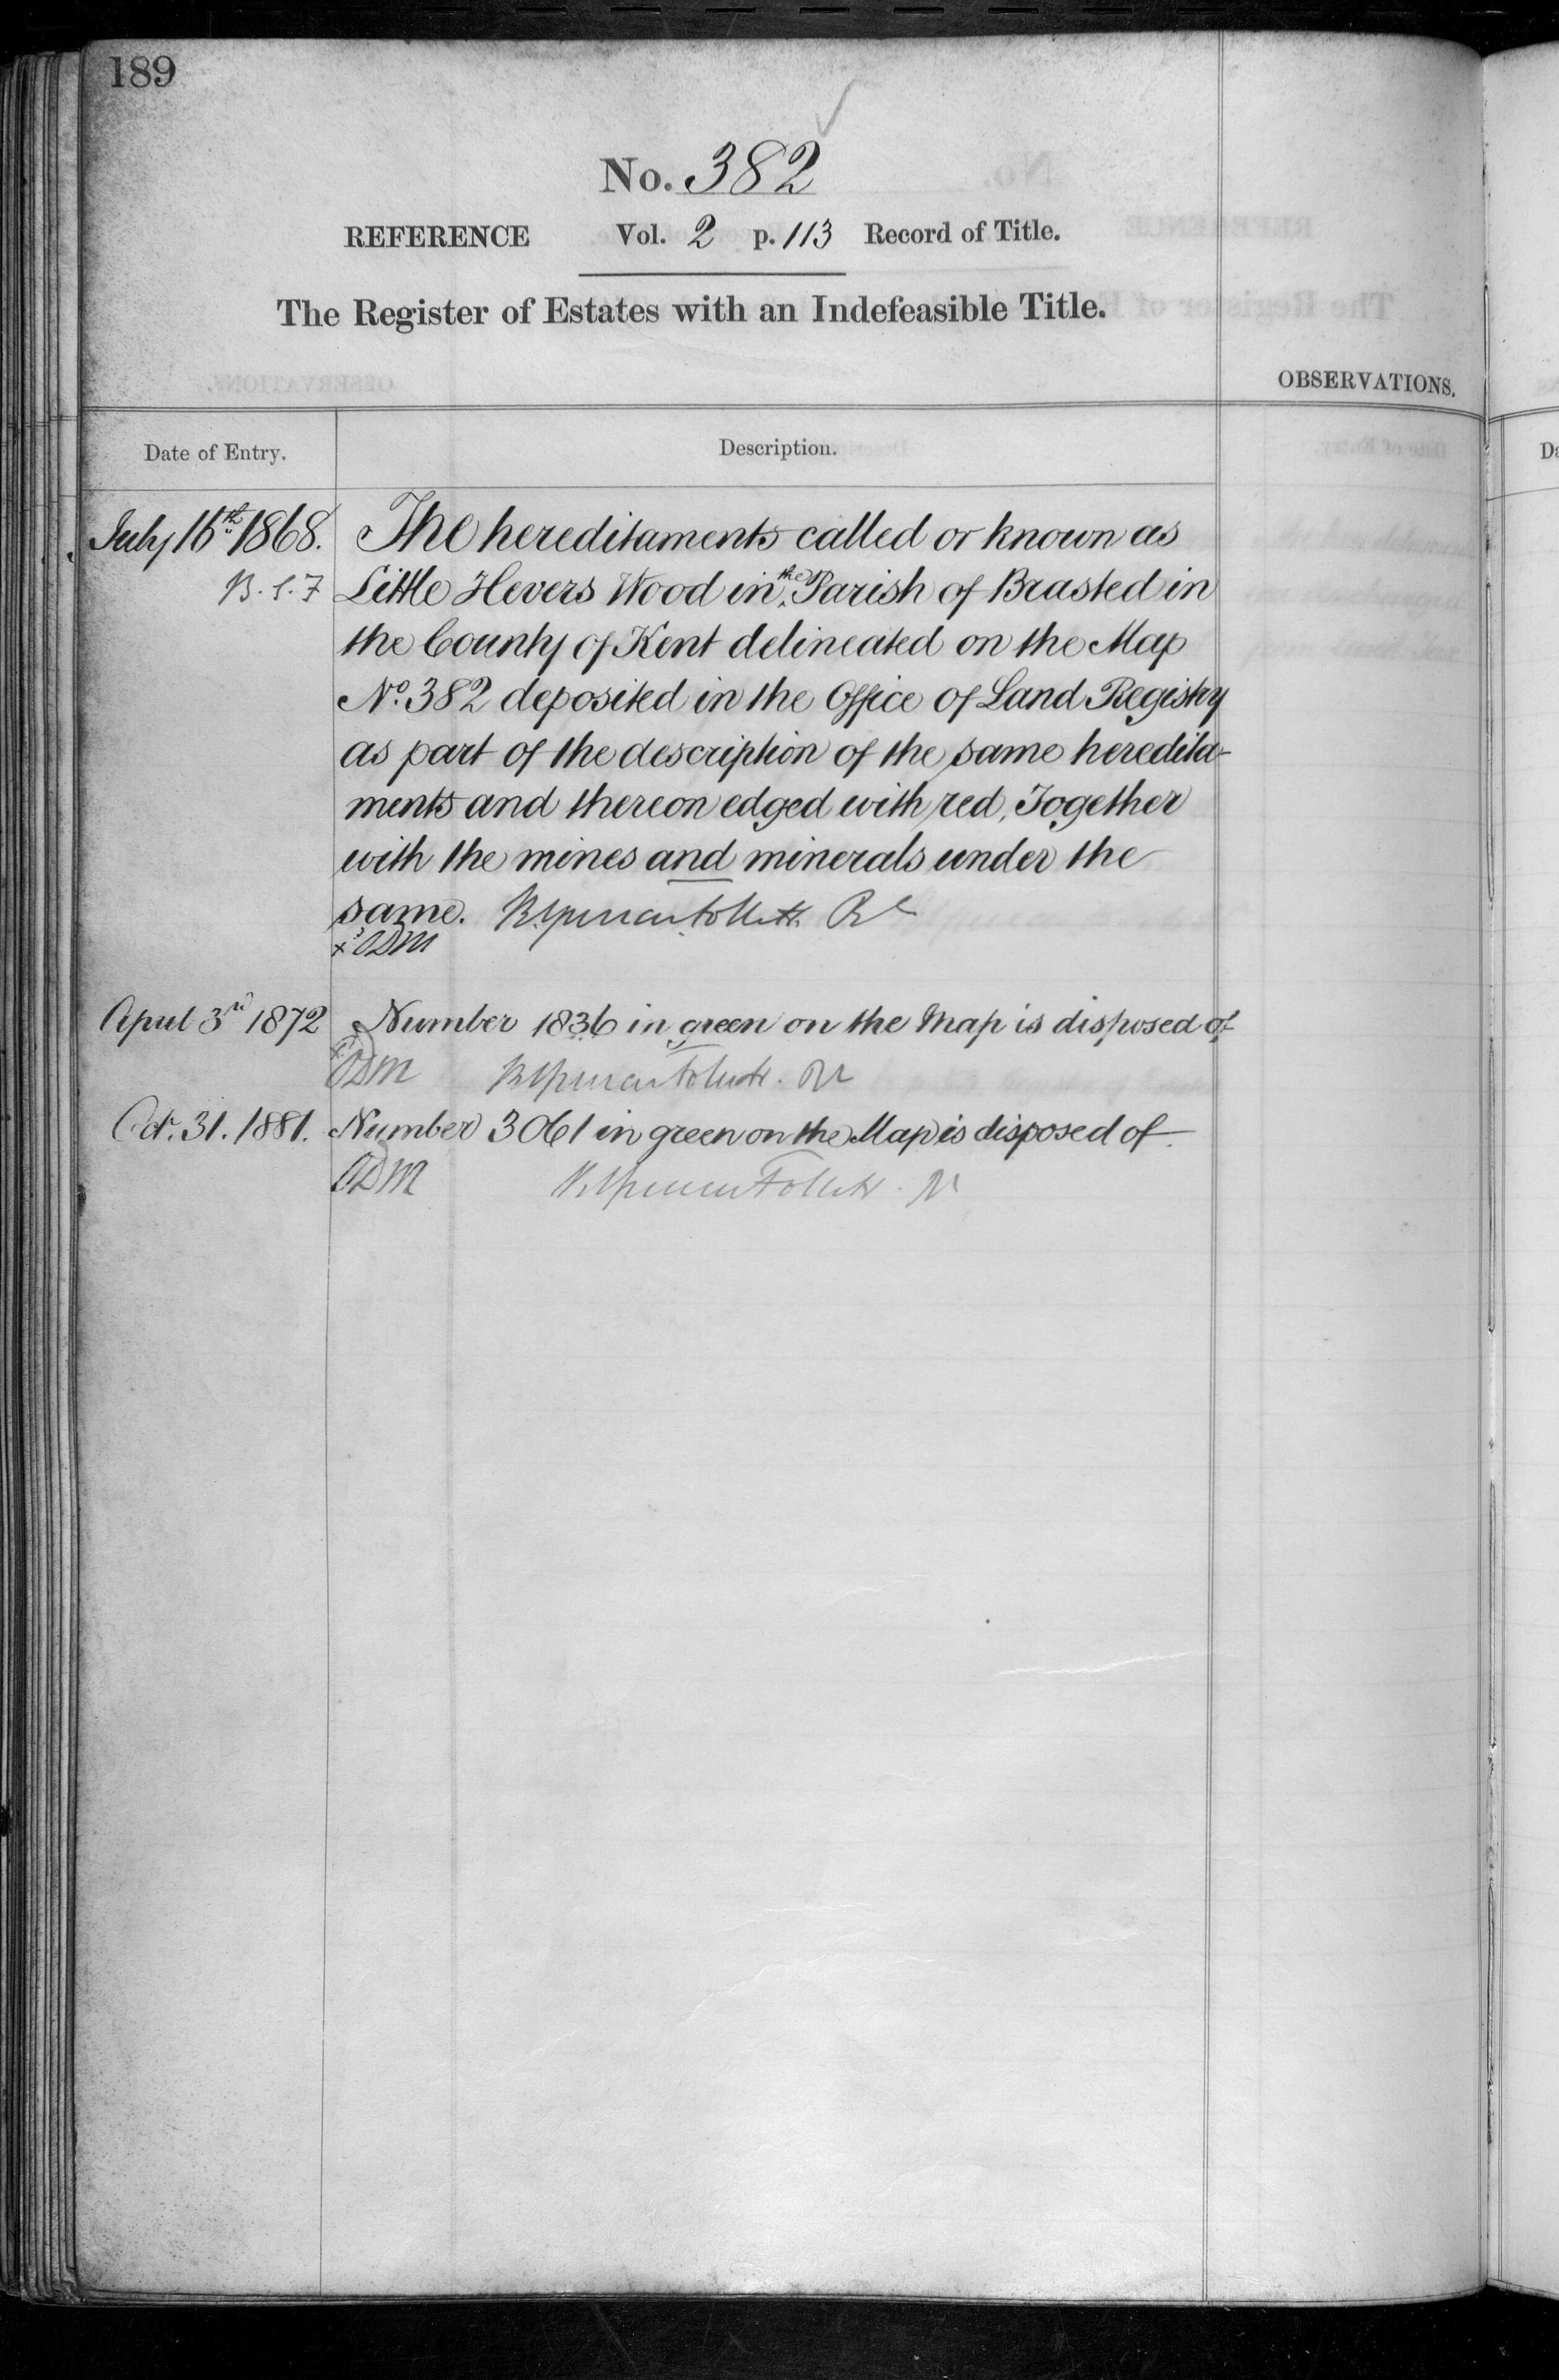 189
No. 382
REFERENCE Vol. 2 p. 113 Record of Title.
The Register of Estates with an Indefeasible Title.
OBSERVATIONS.
Date of Entry. Description.
July 16th 1868. The hereditaments called or known as
B.S.F Little Hevers Wood in the Parish of Brasted in
the County of Kent delineated on the Map
No. 382 deposited in the Office of Land Registry
as part of the description of the same heredita-
ments and thereon edged with red, Together
with the mines and minerals under the
same. B Spencer Follett
ADM
April 3rd 1872 Number 1836 in green on the Map is disposed of
ADM B Spencer Follett.
Oct. 31. 1881. Number 3061 in green on the Map is disposed of.
ADM B Spencer Follett.